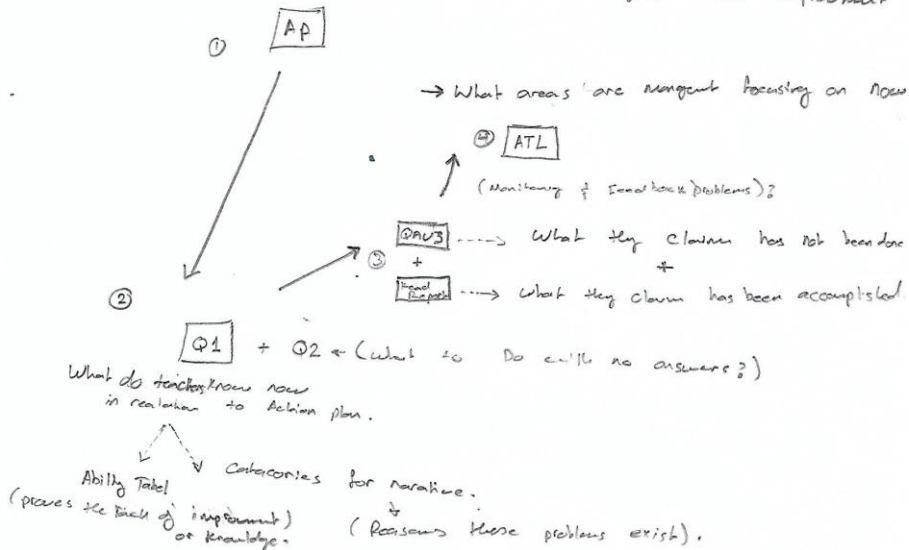 ①
AP
→ What areas are mangent focusing on now
④ ATL
(Monitoring & Feedback/problems)?
③
QAV3 ----> What thy clawm has not been done
+ +
Head Report ----> What thy clawm has been accomplished.
②
Q1 + Q2 ← (What to Do with no answers?)
What do teachers know now
in realation to Action plan.
Ability Tabel
(proves the lack of improvment)
or knowledge.
Catacories for narative.
(Reasons these problems exist).